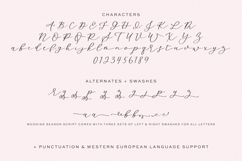 CHARACTERS
A B C D E F G H I J K L M
N O P Q R S T U V W X Y Z
a b c d e f g h i j k l m n o p q r s t u v w x y z
0123456789
ALTERNATES + SWASHES
WEDDING SEASON SCRIPT COMES WITH THREE SETS OF LEFT & RIGHT SWASHES FOR ALL LETTERS
+ PUNCTUATION & WESTERN EUROPEAN LANGUAGE SUPPORT